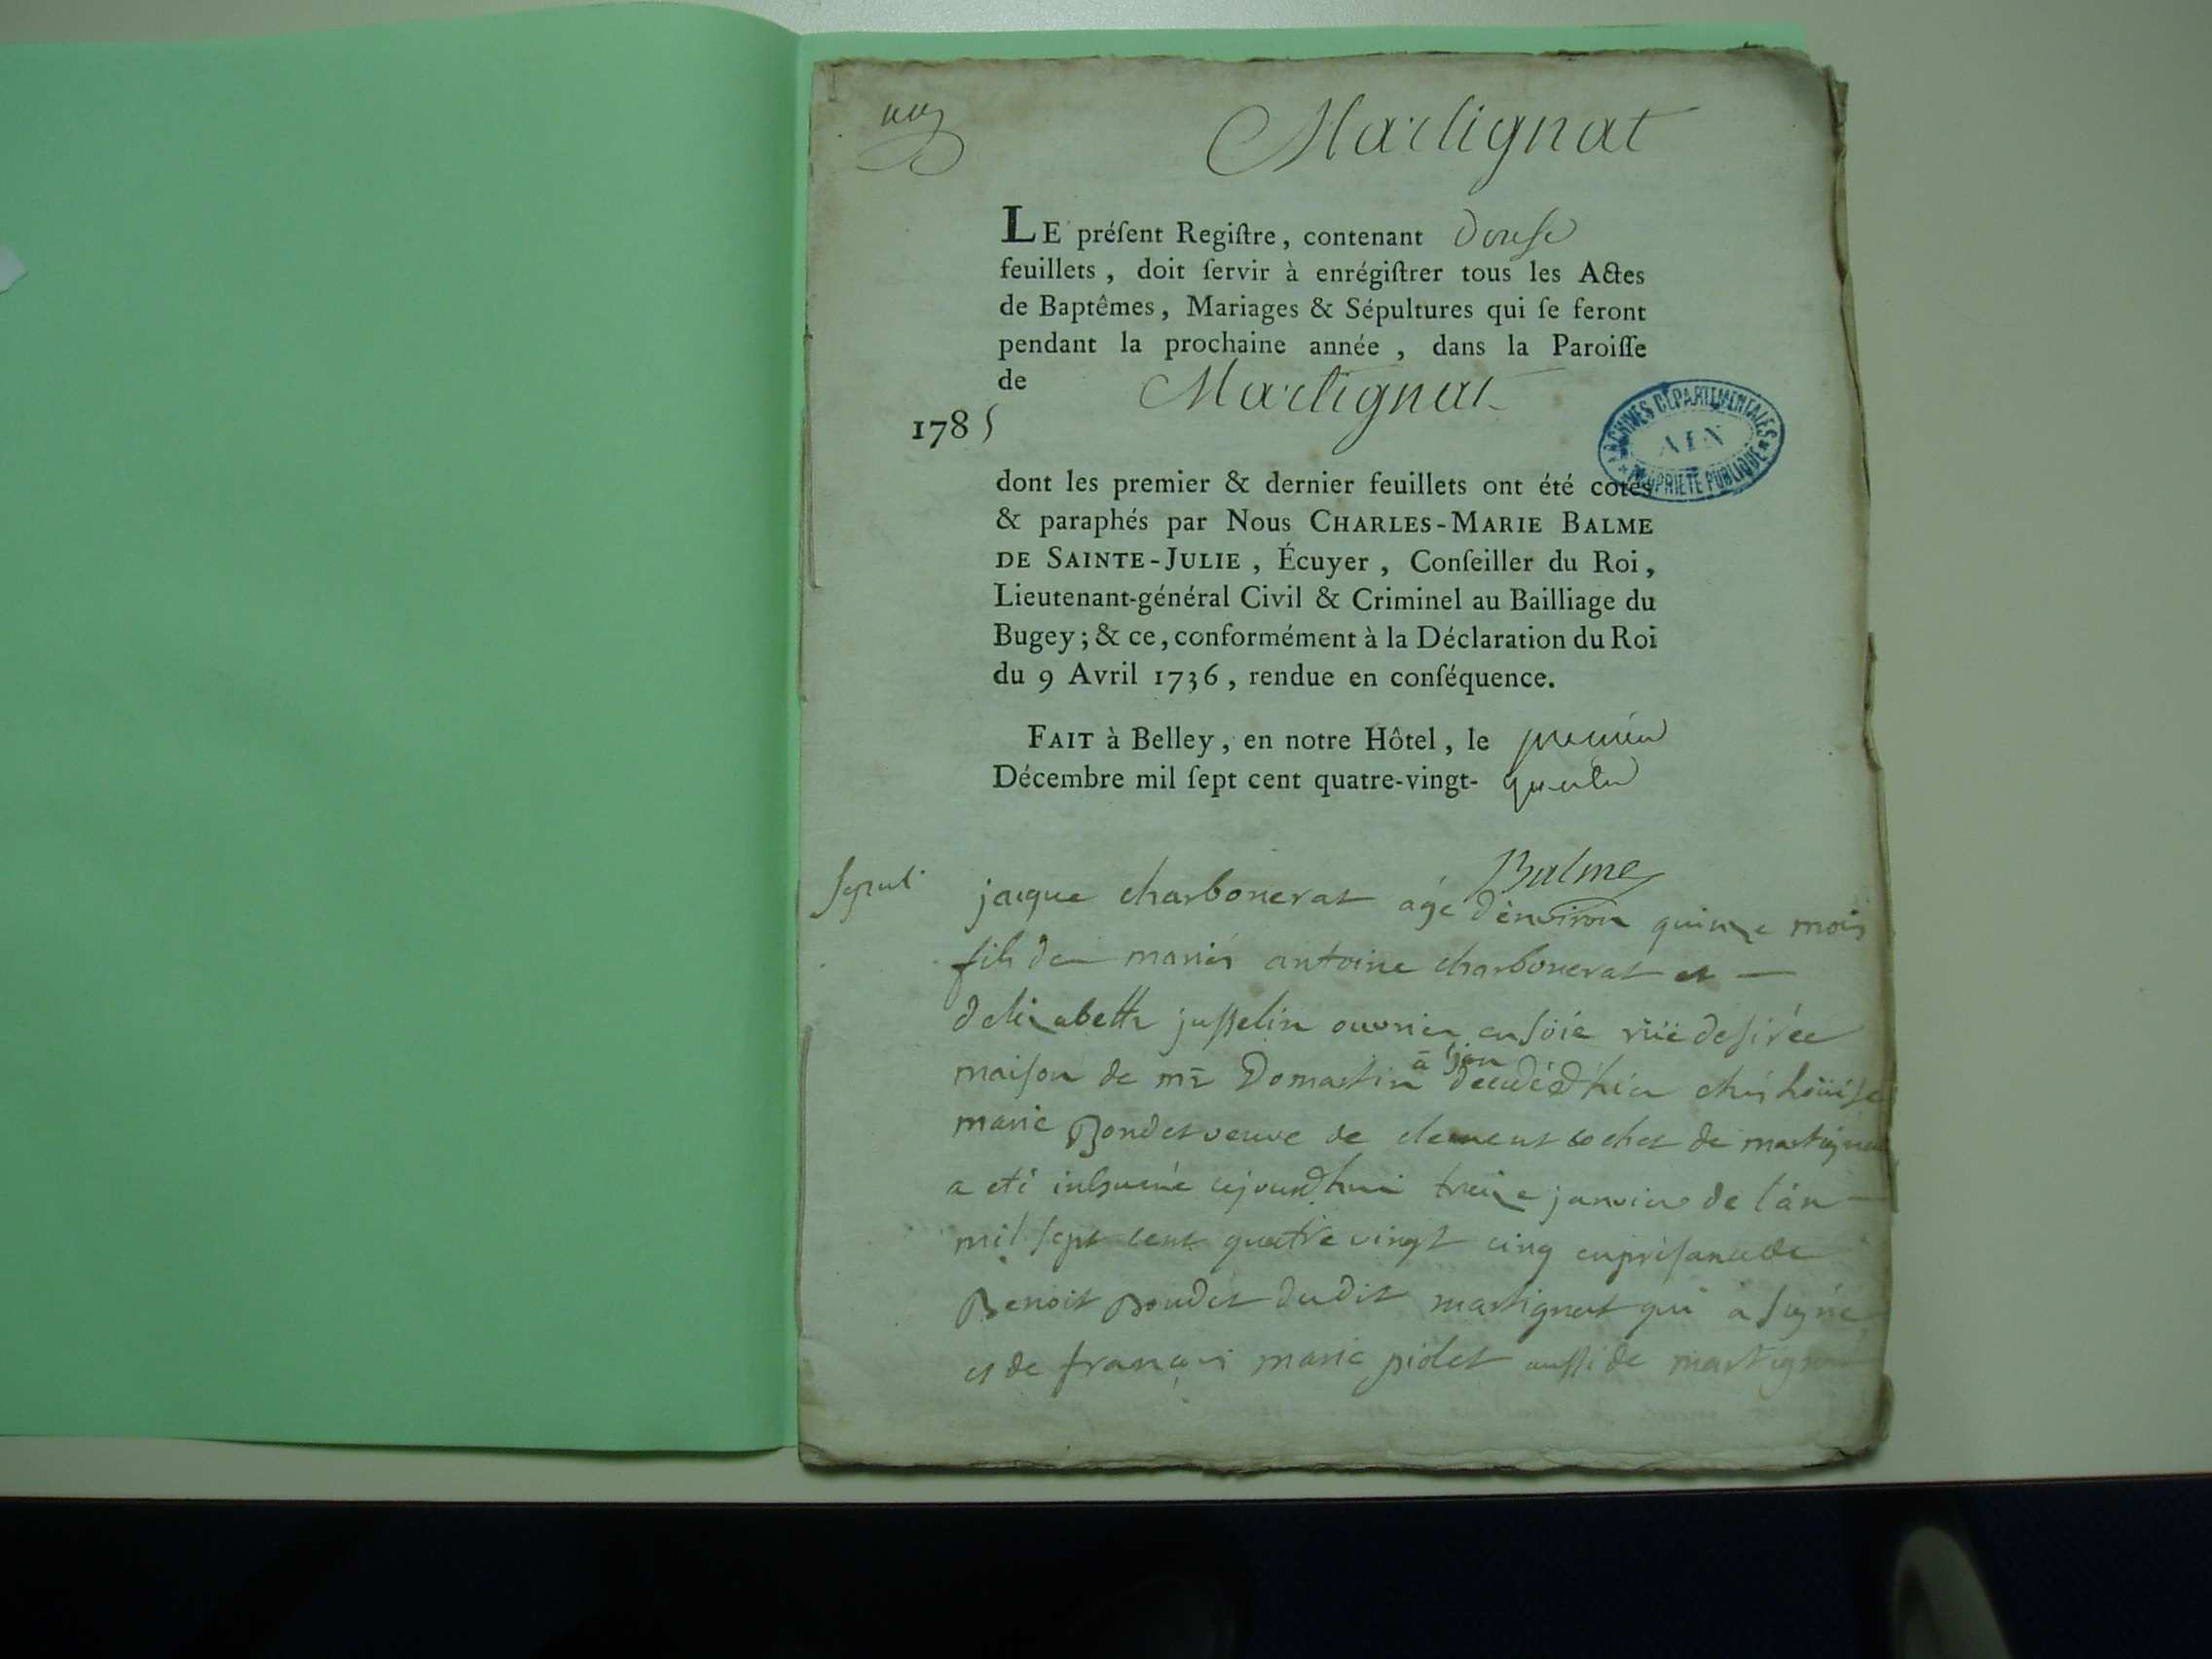 Martignat
LE préſent Regiſtre, contenant Douſe
feuillets, doit ſervir à enrégiſtrer tous les Actes
de Baptêmes, Mariages & Sépultures qui ſe feront
pendant la prochaine année, dans la Paroiſſe
de Martignat
1785
ARCHIVES DÉPARTEMENTALES
AIN
PROPRIÉTÉ PUBLIQUE
dont les premier & dernier feuillets ont été cotés
& paraphés par Nous CHARLES-MARIE BALME
DE SAINTE-JULIE, Écuyer, Conſeiller du Roi,
Lieutenant-général Civil & Criminel au Bailliage du
Bugey; & ce, conformément à la Déclaration du Roi
du 9 Avril 1736, rendue en conſéquence.
FAIT à Belley, en notre Hôtel, le premier
Décembre mil ſept cent quatre-vingt- quatre
Balme
Sepul.
jacque charbonerat âgé d'environ quinze mois
fils de marier antoine charbonerat et
d'elizabeth jusselin ouvrier en soie rüe desirée
maison de mr Domartin à lyon decedé d'hier chés Loüise
marie Bondet veuve de clement cochet de martignat
a eté inhumé cejourdhui treize janvier de l'an
mil sept cent quatre vingt cinq en présance de
Benoit Bondet dudit martignat qui à signé
et de françois marie piolet aussi de martignat